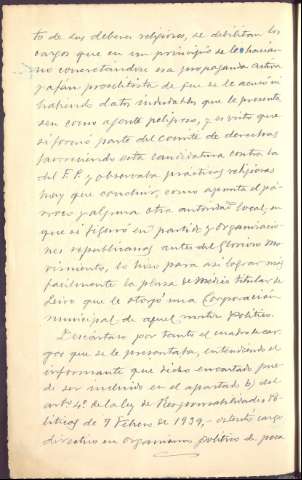 to de sus deberes religiosos, se debilitan los
cargos que en un principio se le hacían
no concretándose esa propaganda activa
y afán proselitista de que se le acusó ni
habiendo datos indudables que le presenta
sen como agente peligroso, y es visto que
si formó parte del comité de derechas
favoreciendo esta candidatura contra la
del F.P. y observaba prácticas religiosas
hay que concluir, como apunta el pá-
rroco y alguna otra autoridad local, en
que si figuró en partido y organizacio-
nes republicanas antes del Glorioso Mo-
vimiento, lo hizo para así lograr más
fácilmente la plaza de Médico titular de
Leiro que le otorgó una Corporación
municipal de aquel matiz político.
Descartaro por tanto el cuadro de car-
gos que se le presentaba, entendiendo el
informante que dicho encartado pue-
de ser incluido en el apartado b) del
artº 4º de la Ley de Responsabilidades Po-
líticas de 9 Febrero de 1939,- ostentó cargo
directivo en organismo político de poca